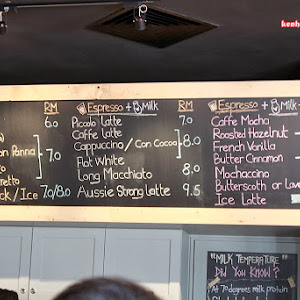 kenh
RM
6.0
on Panna
7.0
retto
ck / Ice 7.0/8.0
Espresso + Milk RM
Piccolo Latte 7.0
Caffe Latte
Cappuccino / Con Cocoa 8.0
Flat White
Long Macchiato 8.0
Aussie Strong Latte 9.5
Espresso + Milk
Caffe Mocha
Roasted Hazelnut
French Vanilla
Butter Cinnamon
Mochaccino
Butterscoth or Lave
Ice Latte
"MILK
TEMPERATURE"
DID YOU KNOW?
At 70 degrees milk protein